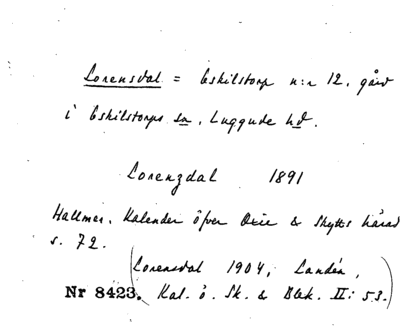 Lorensdal = Eskilstorp n:r 12, gård
i Eskilstorps sn, Luggude hd.
Lorenzdal 1891
Hallmer, Kalender öfver Oxie & Skytts härad
s. 72.
(Lorensdal 1904, Landén,
Nr 8423. Kal. ö. Sk. & Blek. II: 53.)